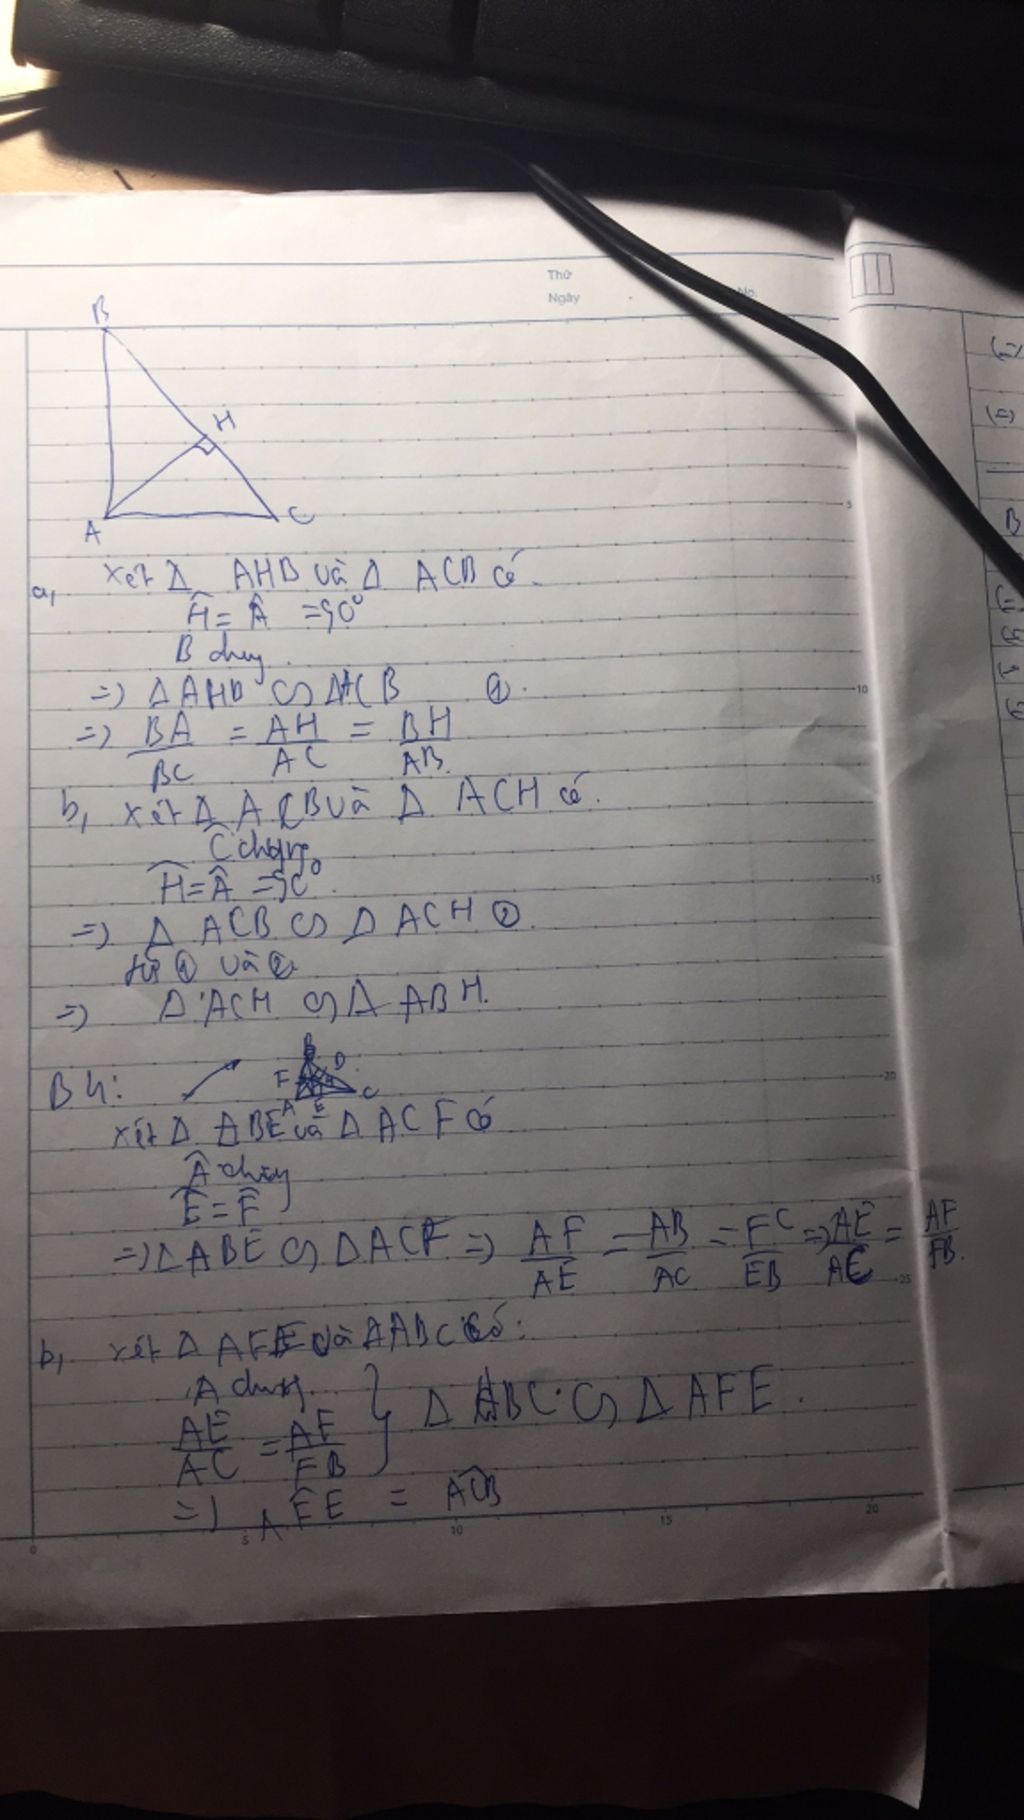 Thứ
Ngày
No.
B
H
A
C
a, xét Δ AHB và Δ ACB có
Ĥ = Â = 90°
B chung
=> Δ AHB ∽ Δ ACB ①
=> BA/BC = AH/AC = BH/AB.
b, xét Δ ACB và Δ ACH có.
Ĉ chung
Ĥ = Â = 90°.
=> Δ ACB ∽ Δ ACH ②.
từ ① và ②
=> Δ ACH ∽ Δ ABH.
B4:
B
F D
H C
A E
xét Δ ABE và Δ ACF có
Â chung
Ê = F̂
=> Δ ABE ∽ Δ ACF => AF/AE = AB/AC = FC/EB => AE/AC = AF/FB.
b, xét Δ AFE và Δ ABC có:
A chung
AE/AC = AF/FB } Δ ABC ∽ Δ AFE.
=> AF̂E = AĈB
5
10
15
20
25
0
5
10
15
20